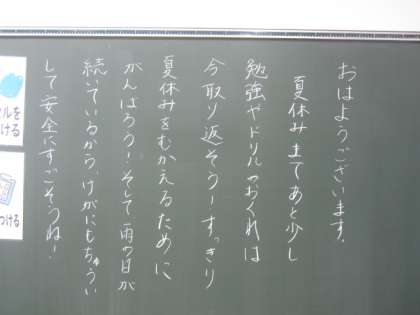 おはようございます。
夏休みまであと少し
勉強やドリルのおくれは
今取り返そう！すっきり
夏休みをむかえるために
がんばろう！そして雨の日が
続いているから、けがにもちゅうい
して安全にすごそうね！
ルを
ける
つける